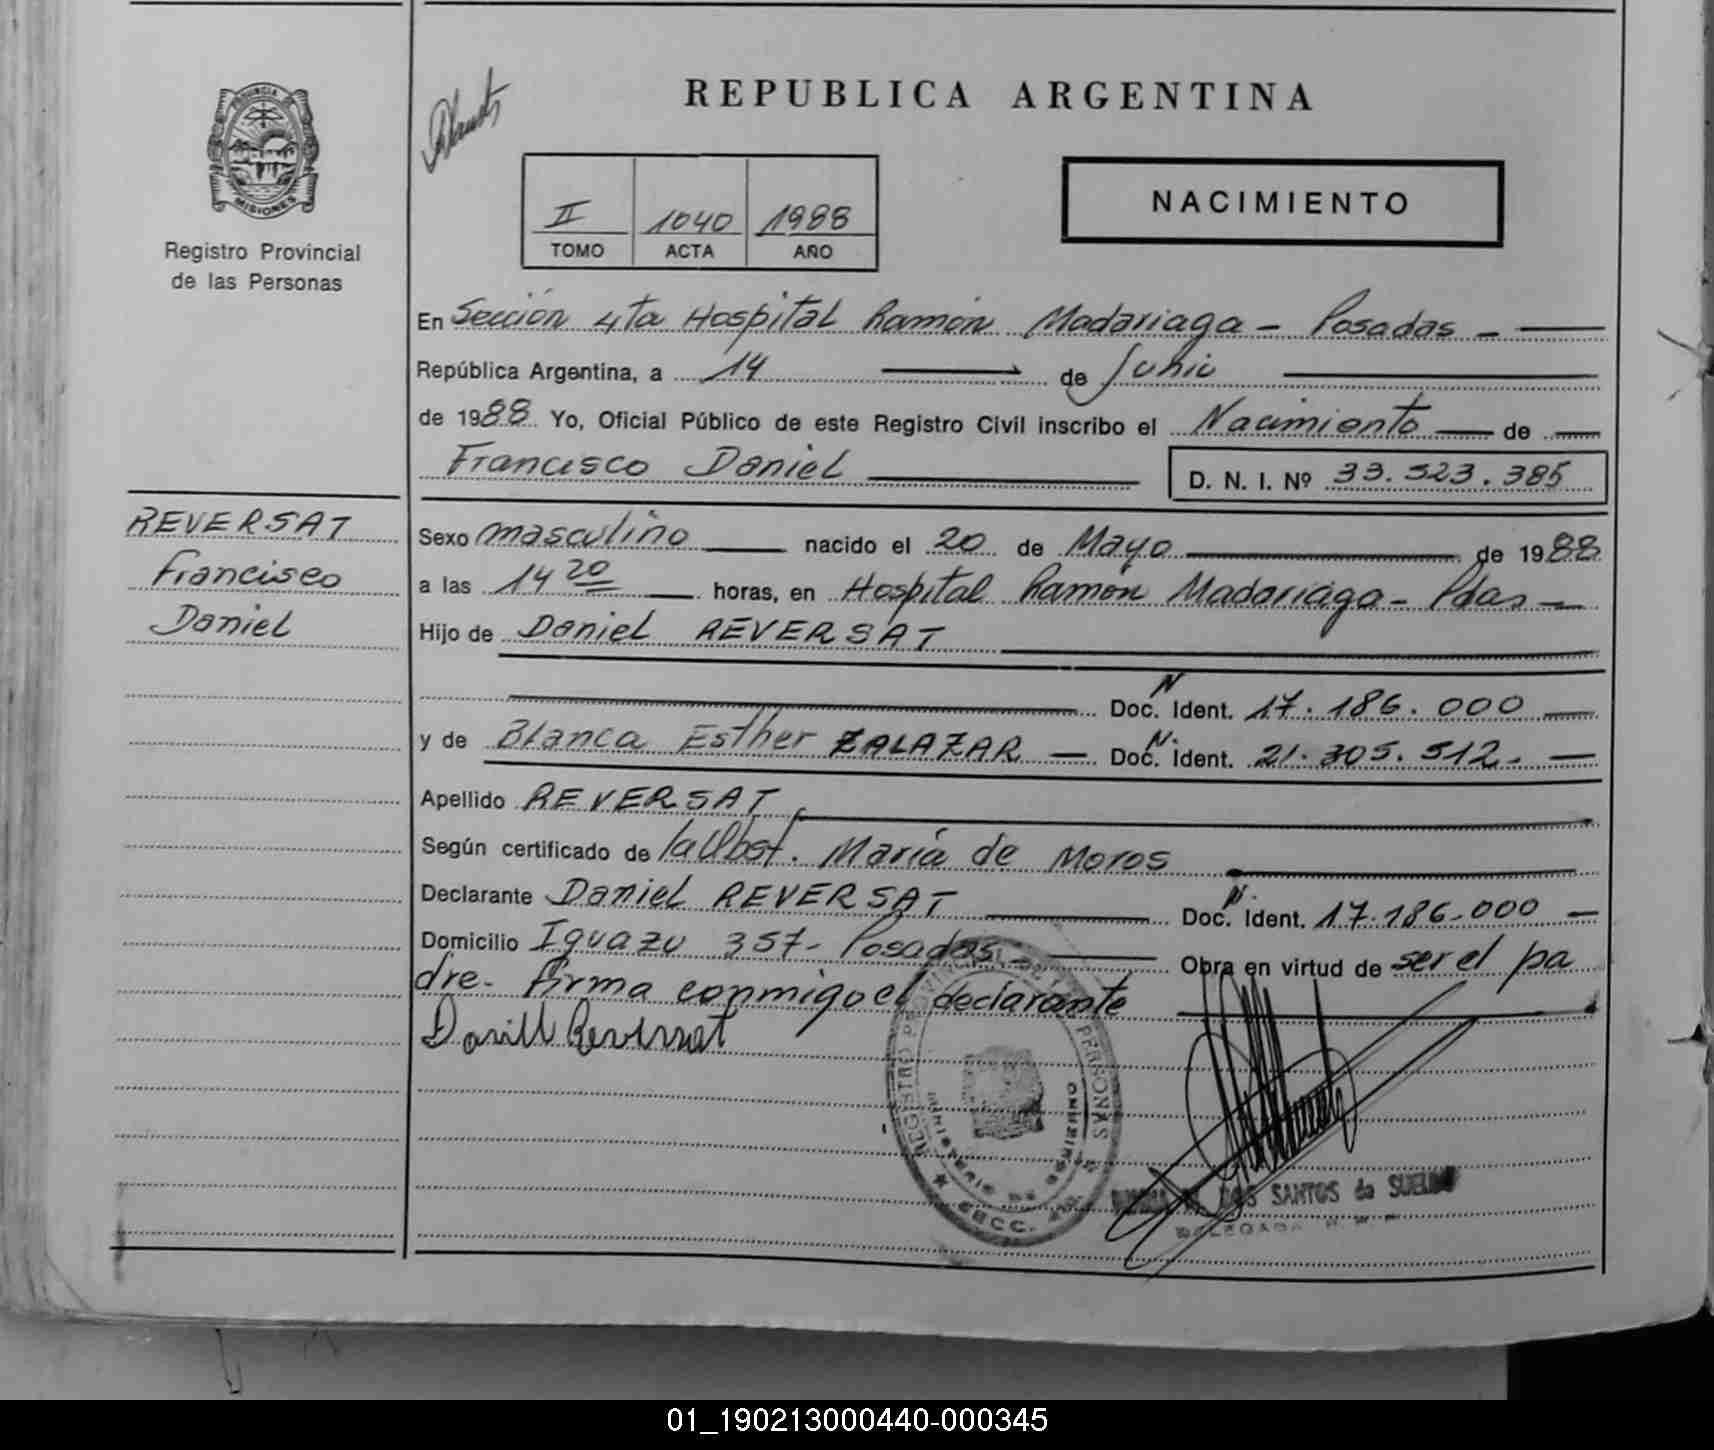 REPUBLICA ARGENTINA
PROVINCIA DE
MISIONES
Registro Provincial
de las Personas
II 1040 1988
TOMO ACTA AÑO
NACIMIENTO
En Sección 4ta Hospital Ramón Madariaga - Posadas -
República Argentina, a 14 de Junio
de 1988 Yo, Oficial Público de este Registro Civil inscribo el Nacimiento de
Francisco Daniel D. N. I. Nº 33.523.385
REVERSAT
Francisco
Daniel
Sexo masculino nacido el 20 de Mayo de 1988
a las 14 20 horas, en Hospital Ramón Madariaga - Pdas -
Hijo de Daniel REVERSAT
Doc. Ident. N 17.186.000
y de Blanca Esther ZALAZAR - Doc. Ident. N. 21.305.512. -
Apellido REVERSAT
Según certificado de la Obst. María de Moros
Declarante Daniel REVERSAT Doc. Ident. N. 17.186.000 -
Domicilio Iguazu 357 - Posadas - Obra en virtud de ser el pa
dre. firma conmigo el declarante
Daniel Reversat
REGISTRO PROVINCIAL DE LAS PERSONAS
MINISTERIO DE GOBIERNO
SECC. 4ta.
DOS SANTOS de SUELDO
DELEGADA
01_190213000440-000345